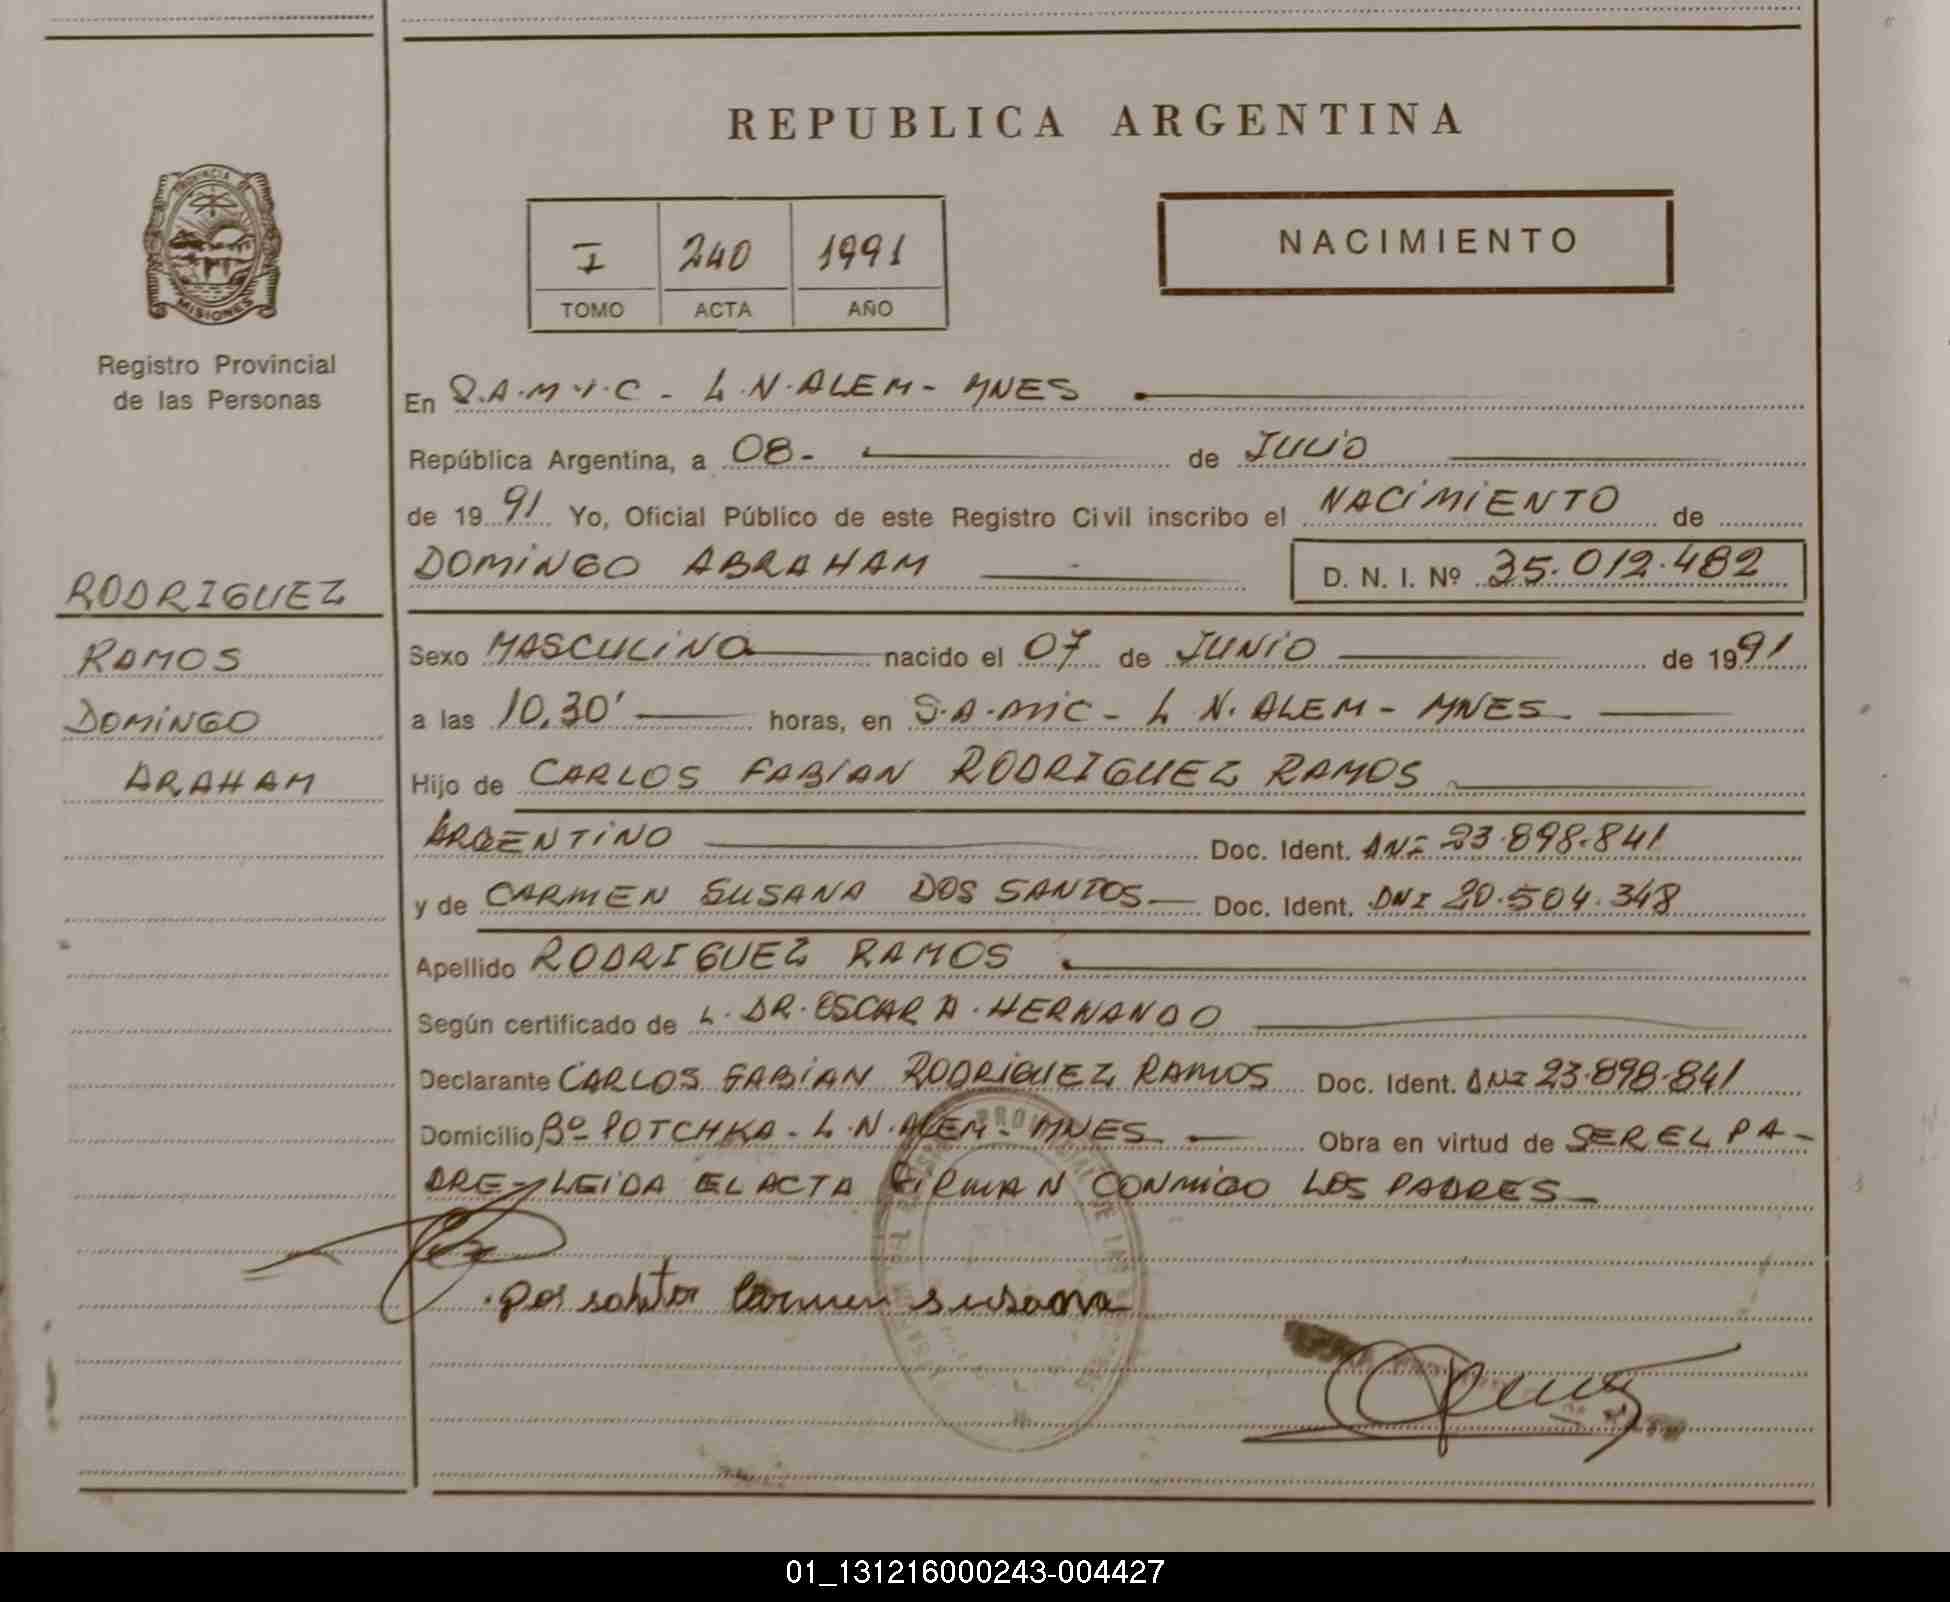 REPUBLICA ARGENTINA
PROVINCIA DE
MISIONES
Registro Provincial
de las Personas
I 240 1991
TOMO ACTA AÑO
NACIMIENTO
En S.A.M.I.C - L.N.ALEM - MNES
República Argentina, a 08- de JULIO
de 1991 Yo, Oficial Público de este Registro Civil inscribo el NACIMIENTO de
DOMINGO ABRAHAM D. N. I. Nº 35.012.482
RODRIGUEZ
RAMOS
DOMINGO
ARAHAM
Sexo MASCULINO nacido el 07 de JUNIO de 1991
a las 10,30' horas, en S.A.MIC - L N. ALEM - MNES
Hijo de CARLOS FABIAN RODRIGUEZ RAMOS
ARGENTINO Doc. Ident. DNI 23.898.841
y de CARMEN SUSANA DOS SANTOS Doc. Ident. DNI 20.504.348
Apellido RODRIGUEZ RAMOS
Según certificado de L. DR. OSCAR A. HERNANDO
Declarante CARLOS FABIAN RODRIGUEZ RAMOS Doc. Ident. DNI 23.898.841
Domicilio Bº POTCHKA - L.N.ALEM - MNES Obra en virtud de SER EL PA-
DRE - LEIDA EL ACTA FIRMAN CONMIGO LOS PADRES
Carmen Susana
01_131216000243-004427